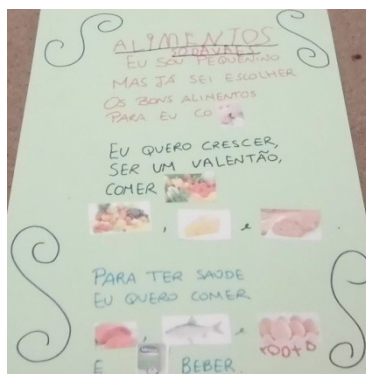 ALIMENTOS
SODAVAES
EU SOU PEQUENINO
MAS JÁ SEI ESCOLHER
OS BONS ALIMENTOS
PARA EU CO
EU QUERO CRESCER,
SER UM VALENTÃO,
COMER
, e .
PARA TER SAÚDE
EU QUERO COMER
, e
E BEBER.